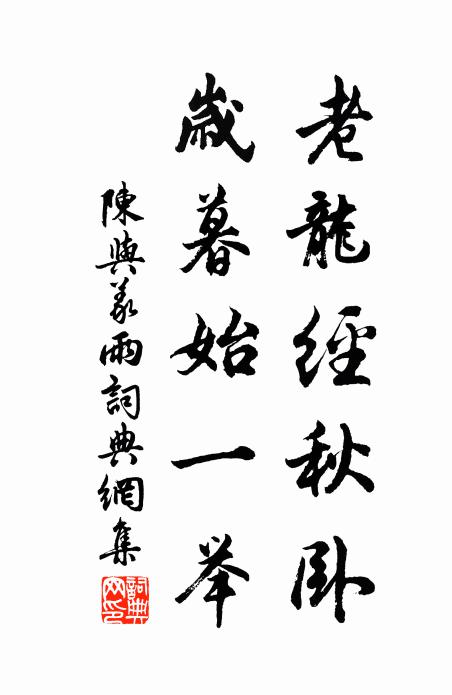 老龍經秋卧
歲暮始一举
陳與義雨詞典網集
詞典網印